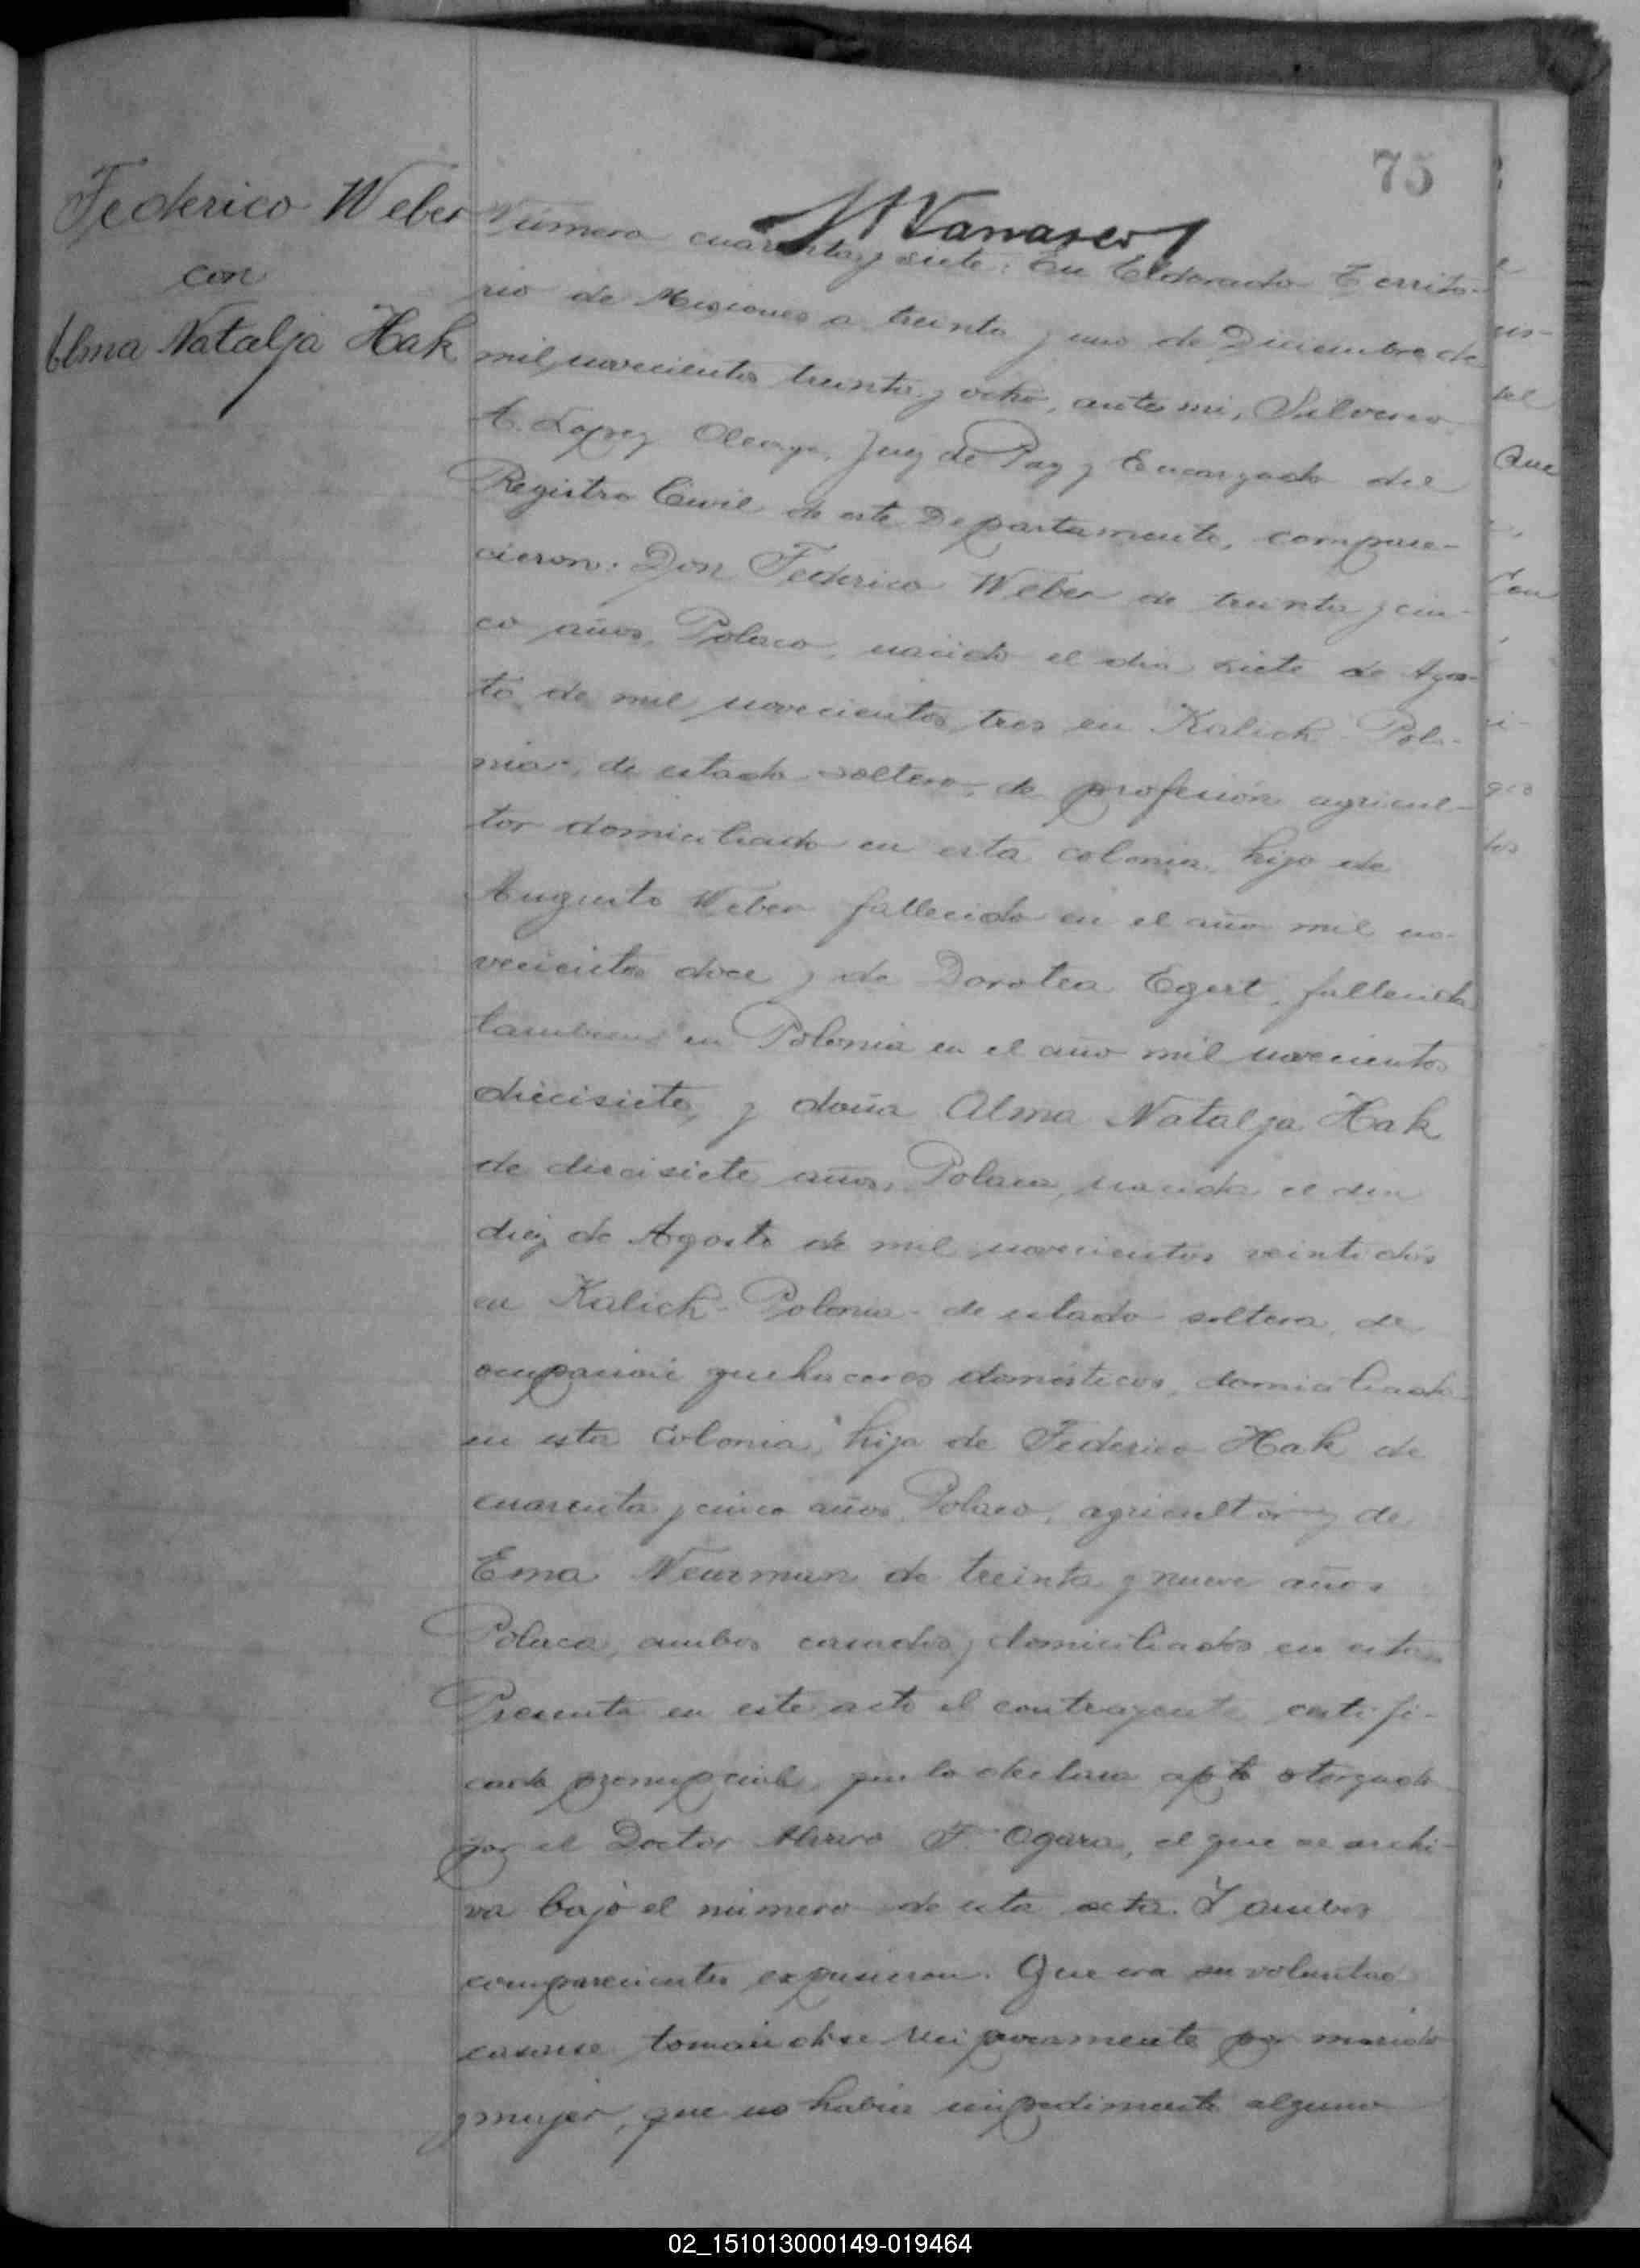 75
Federico Weber
con
Alma Natalja Hak
Número cuarenta y siete: En Eldorado Territo-
rio de Misiones a treinta y uno de Diciembre de
mil novecientos treinta y ocho, ante mi, Silverio
A. Lopez Juez de Paz y Encargado del
Registro Civil de este Departamento, compare-
cieron: Don Federico Weber de treinta y cin-
co años, Polaco, nacido el dia siete de Agos-
to de mil novecientos tres en Kalich - Polo-
nia-, de estado soltero, de profesión agricul-
tor domiciliado en esta colonia, hijo de
Augusto Weber fallecido en el año mil no-
vecientos doce y de Dorotea Egert, fallecida
tambien en Polonia en el año mil novecientos
diecisiete, y doña Alma Natalja Hak
de diecisiete años, Polaca, nacida el dia
diez de Agosto de mil novecientos veintidós
en Kalich - Polonia - de estado soltera, de
ocupación quehaceres domésticos, domiciliada
en esta Colonia, hija de Federico Hak de
cuarenta y cinco años, Polaco, agricultor y de
Ema Neurman de treinta y nueve años
Polaca, ambos casados y domiciliados en esta
Presenta en este acto el contrayente certifi-
cado prenupcial que lo declara apto otorgado
por el Doctor Alvaro F. Ogara, el que se archi-
va bajo el número de esta acta. Y ambos
comparecientes expusieron. Que era su voluntad
casarse tomandose reciprocamente por marido
y mujer, que no habia impedimento alguno
02_151013000149-019464